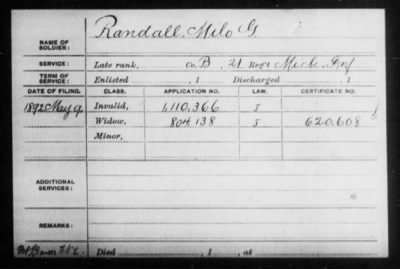 Randall, Milo G.
NAME OF SOLDIER:
SERVICE: Late rank, Co. B, 21 Reg't Mich. Inf
TERM OF SERVICE: Enlisted , 1 Discharged , 1
DATE OF FILING. CLASS. APPLICATION NO. LAW. CERTIFICATE NO.
1892 May 9, Invalid, 1,110,366 J
Widow, 804 138 J 620,608
Minor,
ADDITIONAL SERVICES:
REMARKS:
Died , 1 , at